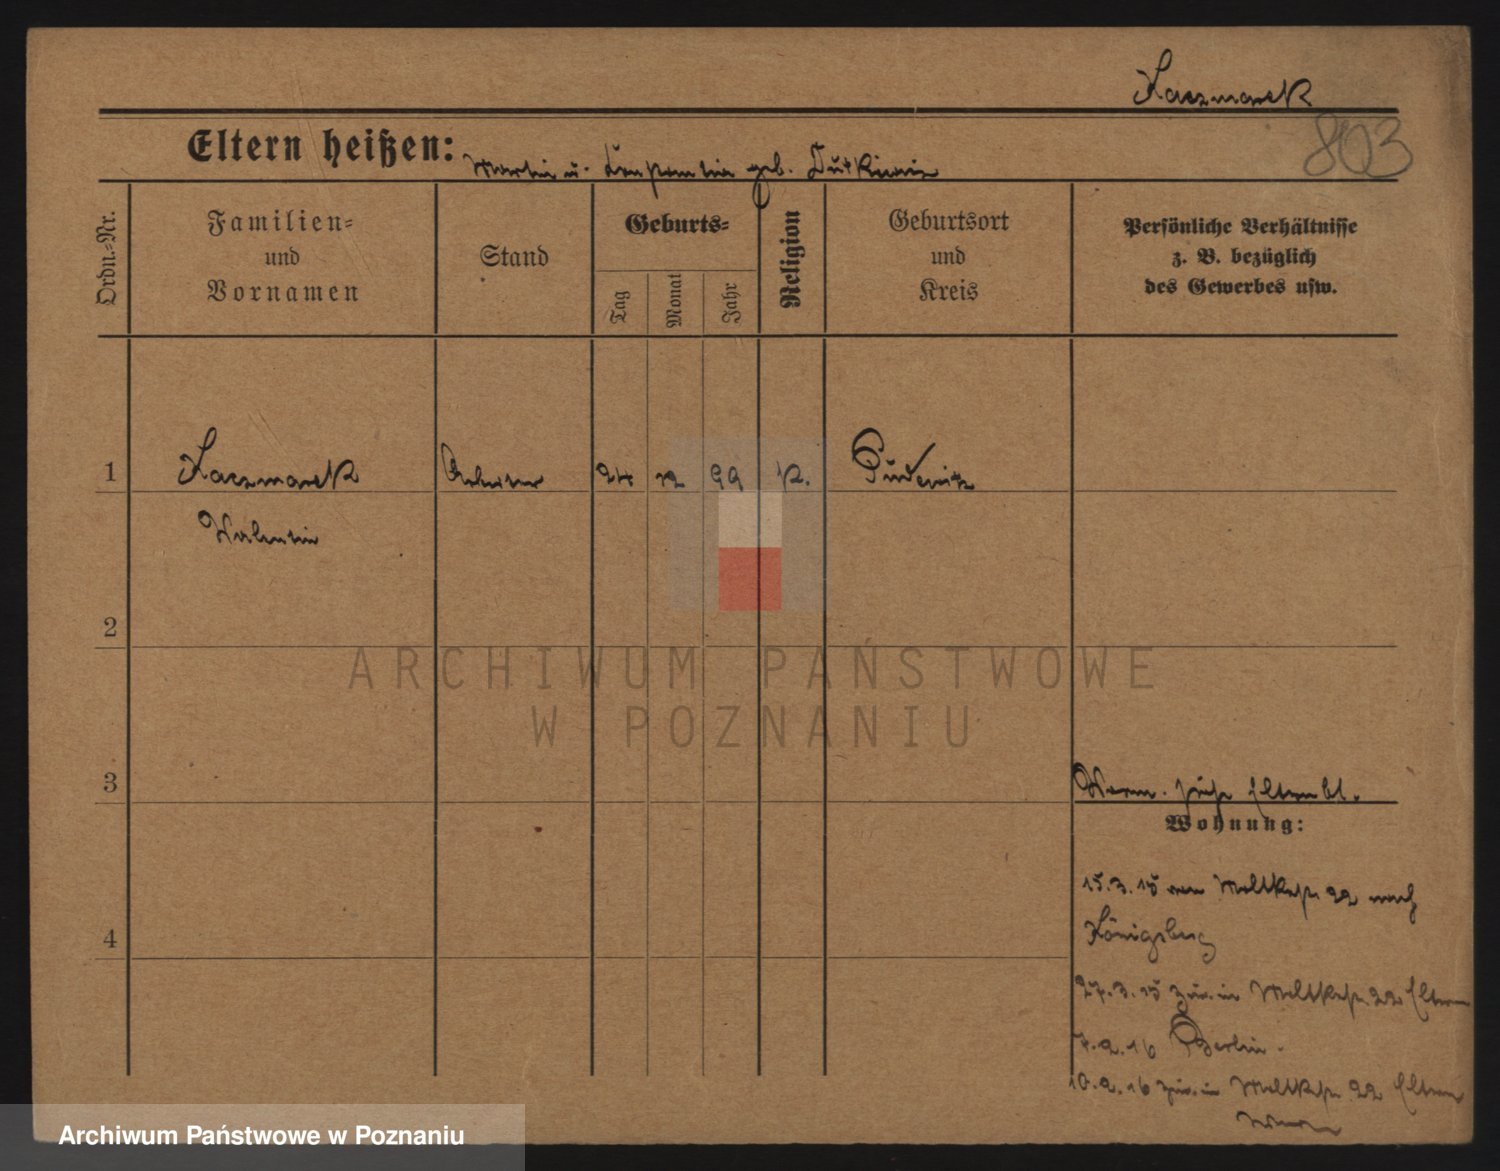 Kaczmarek
803
Eltern heißen: Martin u. Konstantia geb. Dutkiewicz
Ordn.-Nr.
Familien-
und
Vornamen
Stand
Geburts-
Tag
Monat
Jahr
Religion
Geburtsort
und
Kreis
Persönliche Verhältnisse
z. B. bezüglich
des Gewerbes usw.
1 Kaczmarek Arbeiter 24 12 99 k. Pudewitz
Valentin
2
ARCHIWUM PAŃSTWOWE
W POZNANIU
3
siehe Elternbl.
Wohnung:
15.3.15 von Moltkestr 22 nach
Königsberg
4
27.3.15 zur. in Moltkestr. 22 Eltern
7.2.16 Berlin.
10.2.16 zur. in Moltkestr 22 Eltern
Archiwum Państwowe w Poznaniu